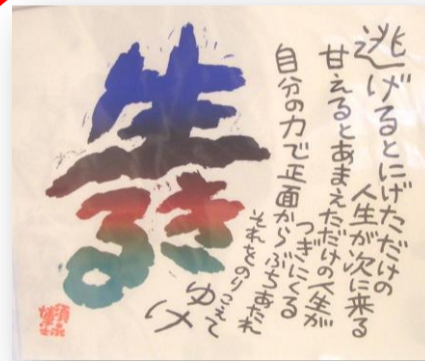 逃げるとにげただけの
人生が次に来る
甘えるとあまえただけの人生が
つぎにくる
自分の力で正面からぶちあたれ
それをのりこえて
ゆけ
生きる
須永博士